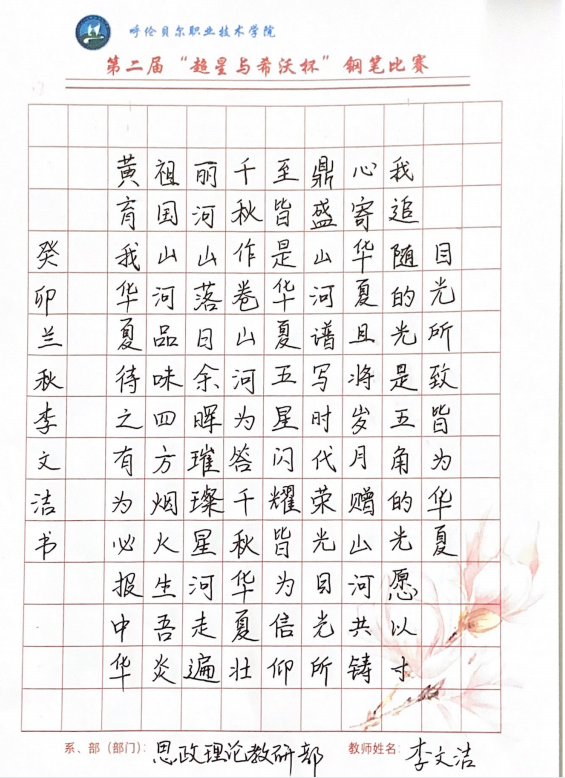 呼伦贝尔职业技术学院
第二届“超星与希沃杯”钢笔比赛
目光所致皆为华夏
我追随的光是五角的光愿以寸
心寄华夏且将岁月赠山河共铸
鼎盛山河谱写时代荣光目光所
至皆是华夏五星闪耀皆为信仰
千秋作卷山河为答千秋华夏壮
丽河山落日余晖璀璨星河走遍
祖国山河品味四方烟火生吾炎
黄育我华夏待之有为必报中华
癸卯兰秋李文洁书
系、部（部门）：思政理论教研部 教师姓名：李文洁